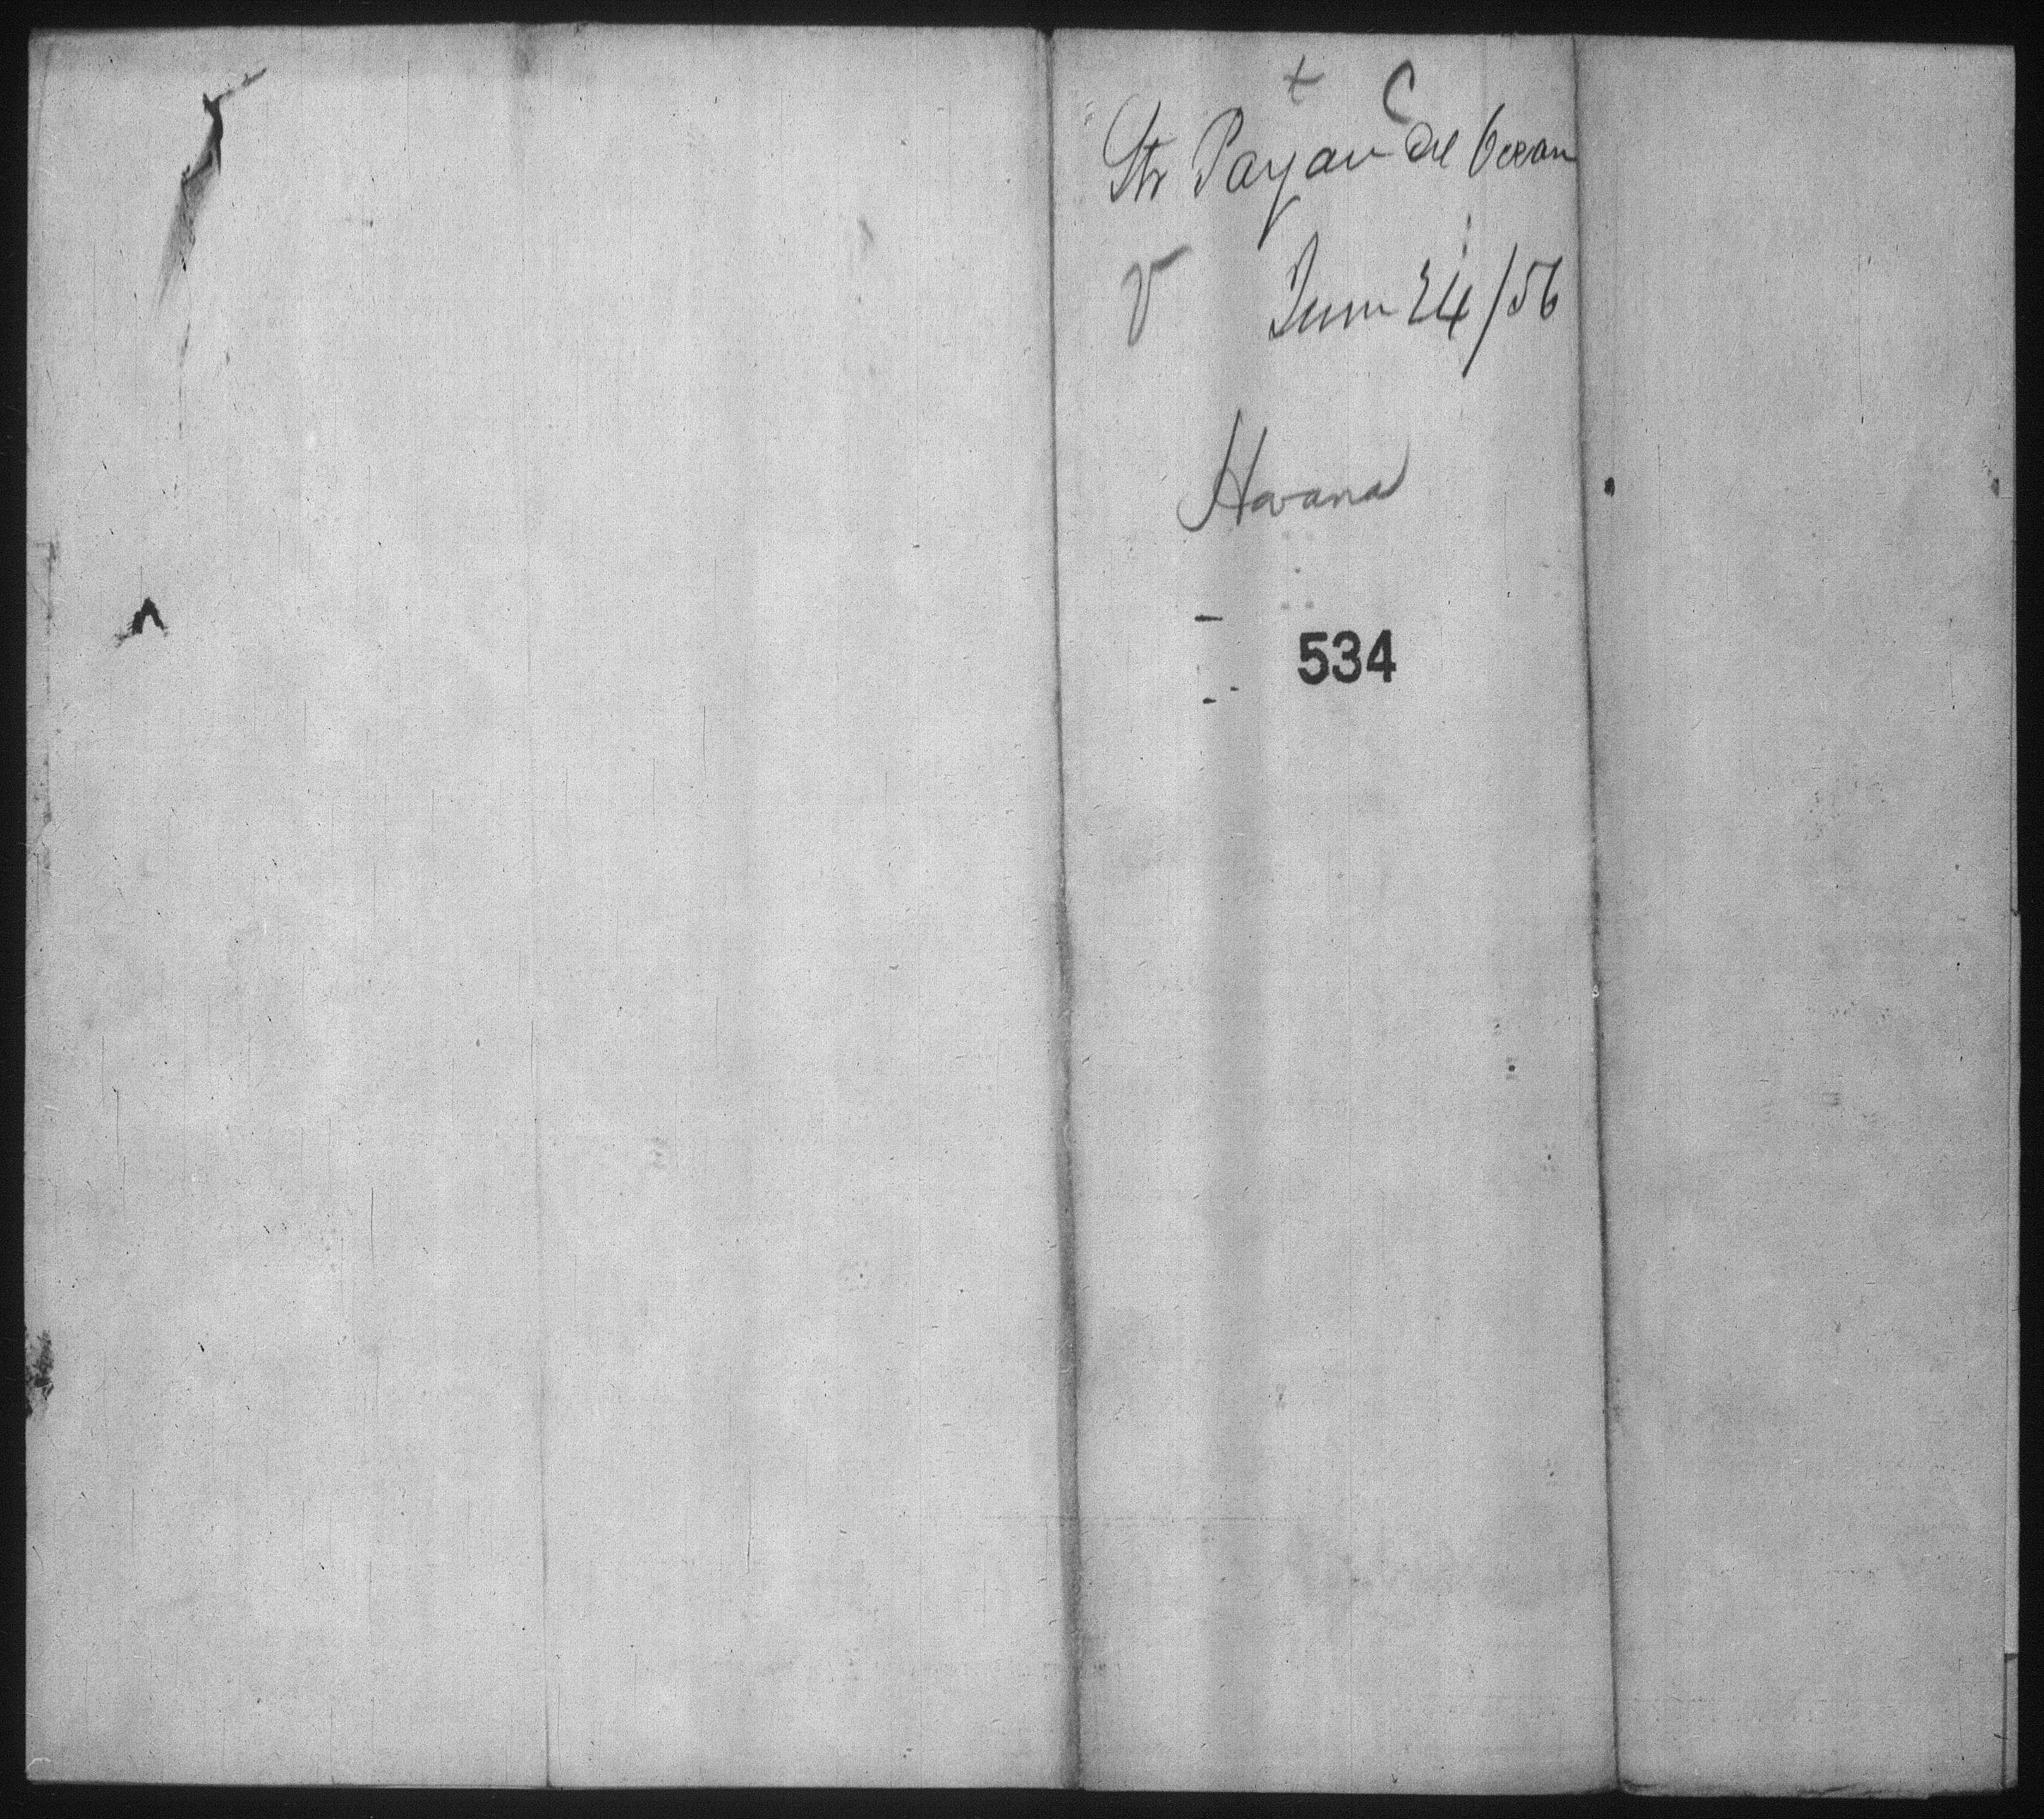 + C
Str Payau del Ocean
V June 24/56
Havana
534